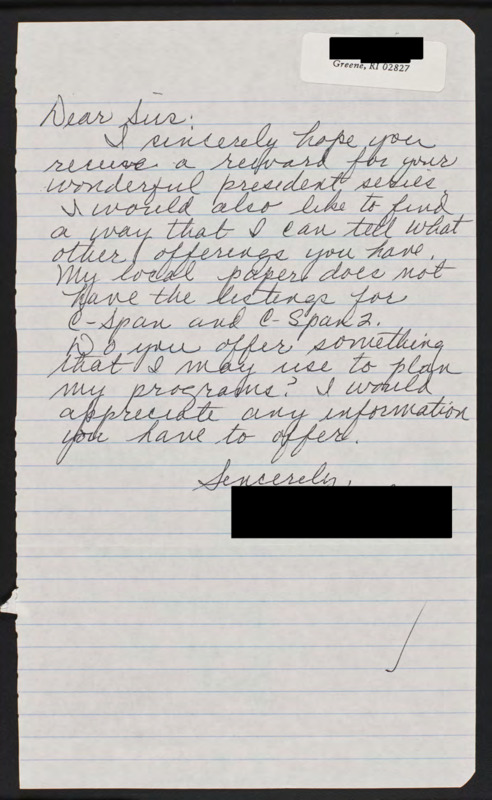 Greene, RI 02827
Dear Sirs:
I sincerely hope you
receive a reward for your
wonderful president series.
I would also like to find
a way that I can tell what
other offerings you have.
My local paper does not
have the listings for
C-Span and C-Span 2.
Do you offer something
that I may use to plan
my programs? I would
appreciate any information
you have to offer.
Sincerely,